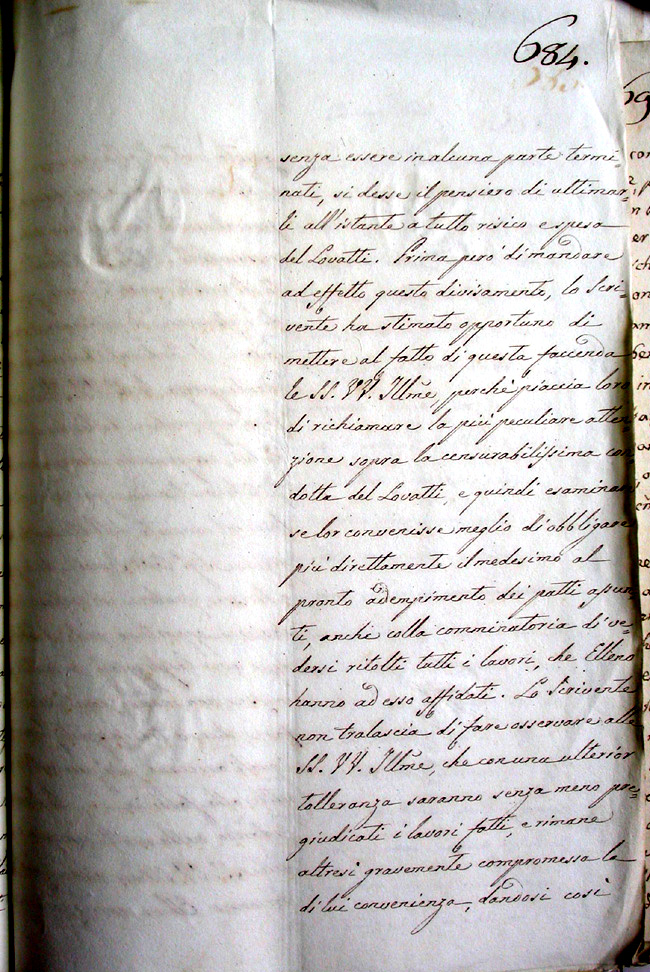 684.
senza essere in alcuna parte termi-
nati, si desse il pensiero di ultimar-
li all'istante a tutto risico e spesa
del Lovatti. Prima però di mandare
ad effetto questo divisamento, lo Scri-
vente ha stimato opportuno di
mettere al fatto di questa faccenda
le SS. VV. Illme, perchè piaccia loro
di richiamare la più peculiare atten
zione sopra la censurabilissima con
dotta del Lovatti, e quindi esaminare
se lor convenisse meglio di obbligare
più direttamente il medesimo al
pronto adempimento dei patti assun
ti, anche colla comminatoria di ve-
dersi ritolti tutti i lavori, che Elleno
hanno ad esso affidati. Lo Scrivente
non tralascia di fare osservare alle
SS. VV. Illme, che con una ulterior
tolleranza saranno senza meno pre-
giudicati i lavori fatti, e rimane
altresì gravemente compromessa la
di lui convenienza, dandosi così